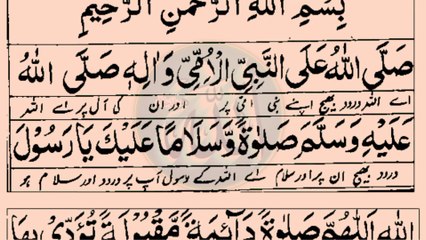 بِسْمِ اللهِ الرَّحْمٰنِ الرَّحِيْمِ
صَلَّى اللهُ عَلَى النَّبِيِّ الْاُمِّيِّ وَاٰلِهٖ صَلَّى اللهُ
اے اللہ درود بھیج اپنے نبی امی پر اور ان کی آل پر اے اللہ
عَلَيْهِ وَسَلَّمَ صَلٰوةً وَّسَلَامًا عَلَيْكَ يَا رَسُوْلَ
درود بھیج ان پر اور سلام اے اللہ کے رسول آپ پر درود اور سلام ہو
اللهِ اَللّٰهُمَّ صَلٰوةً دَآئِمَةً مَّقْبُوْلَةً تُؤَدِّىْ بِهَا